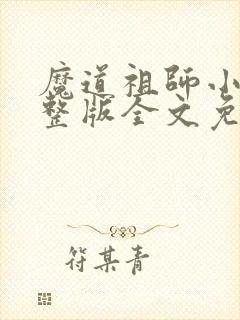 魔道祖師小
整版全文免
符某青